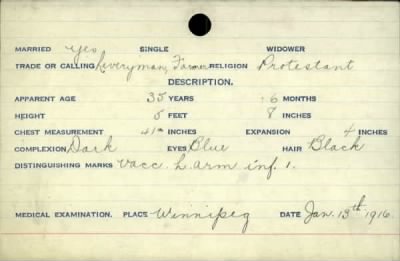 MARRIED Yes SINGLE WIDOWER
TRADE OR CALLING Liveryman, Farmer RELIGION Protestant
DESCRIPTION.
APPARENT AGE 35 YEARS 6 MONTHS
HEIGHT 5 FEET 8 INCHES
CHEST MEASUREMENT 41 INCHES EXPANSION 4 INCHES
COMPLEXION Dark EYES Blue HAIR Black
DISTINGUISHING MARKS Vacc. L. arm inf. 1.
MEDICAL EXAMINATION. PLACE Winnipeg DATE Jan. 13th 1916.